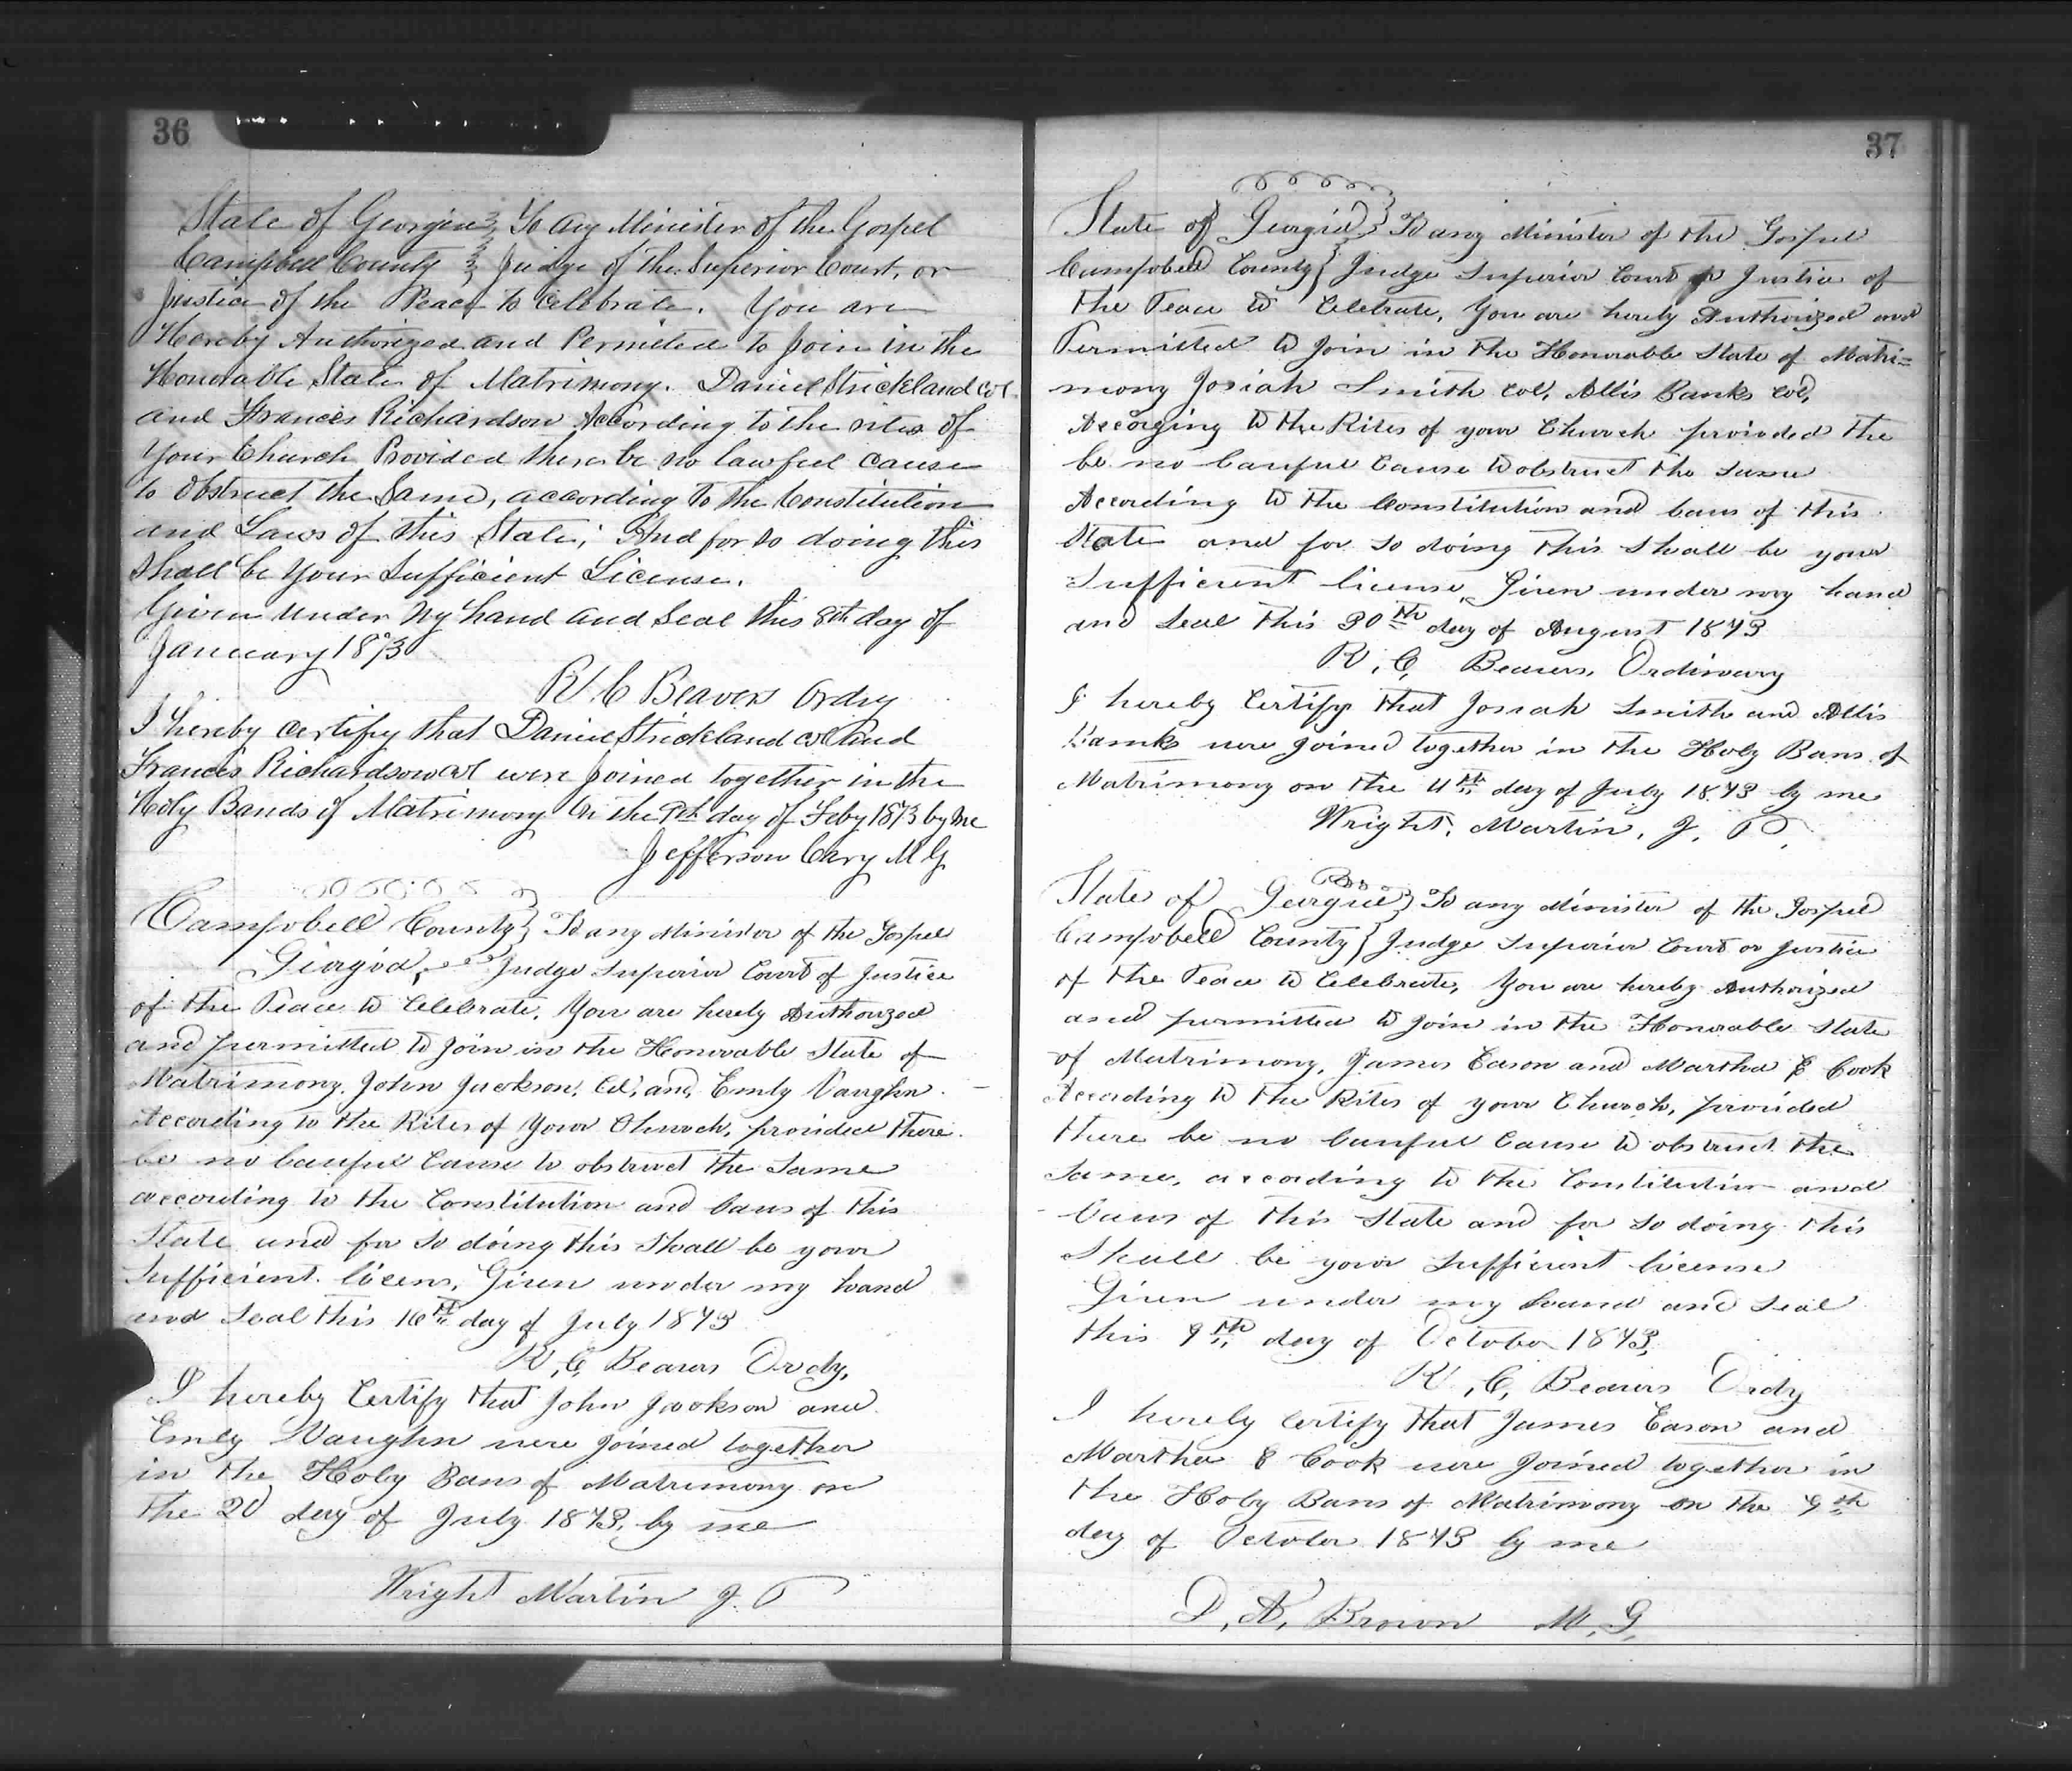 36
State of Georgia } To any Minister of the Gospel
Campbell County } Judge of the Superior Court, or
Justice of the Peace to Celebrate. You are
Hereby Authorized and Permitted to Join in the
Honorable State of Matrimony. Daniel Strickland col
and Frances Richardson According to the rites of
Your Church Provided there be no lawful cause
to obstruct the Same, according to the Constitution
and Laws of this State; And for so doing this
shall be Your Sufficient License.
Given under My hand and Seal this 8th day of
January 1873
R. C Beavers Ordry
I hereby certify that Daniel Strickland col and
Frances Richardson col were Joined together in the
Holy Bands of Matrimony on the 9th day of Feby 1873 by me
Jefferson Cary M G
Campbell County } To any Minister of the Gospel
Georgia, Judge Superior Court of Justice
of the Peace to Celebrate. You are hereby Authorized
and permitted to Join in the Honorable State of
Matrimony. John Jackson, Col, and, Emily Vaughn.
According to the Rites of Your Church, provided there.
be no lawful Cause to obstruct the Same
according to the Constitution and laws of this
State and for so doing this shall be your
Sufficient licens, Given under my hand
and Seal this 16th day of July 1873
R, C, Beavers Ordy,
I hereby Certify that John Jackson and
Emily Vaughn were joined together
in the Holy Bans of Matrimony on
the 20 day of July 1873, by me
Wright Martin J. P
37
State of Georgia } To any Minister of the Gospel
Campbell County } Judge Superior Court or Justice of
the Peace to Celebrate, You are hereby Authorized and
Permitted to join in the Honorable State of Matri=
mony Josiah Smith col, Allis Banks col,
Accorging to the Rites of your Church provided the
be no lawful Cause to obstruct the Same
According to the Constitution and laws of this
State and for so doing this shall be your
Sufficient license, Given under my hand
and Seal this 30th day of August 1873
R, C, Beavers, Ordinary
I hereby Certify that Josiah Smith and Allis
Banks were joined together in the Holy Bans of
Matrimony on the 4th day of July 1873 by me
Wright, Martin, J. P,
State of Georgia } To any Minister of the Gospel
Campbell County } Judge Superior Court or Justice
of the Peace to Celebrate, You are hereby Authorized
and permitted to Join in the Honorable State
of Matrimony, James Eason and Martha E Cook
According to the Rites of your Church, provided
there be no lawful Cause to obstruct the
Same, according to the Constitution and
laws of this State and for so doing this
Shall be your Sufficient license
Given under my hand and Seal
this 9th day of October 1873,
R, C, Beavers Ordy
I hereby Certify that James Eason and
Martha E Cook were Joined together in
the Holy Bans of Matrimony on the 9th
day of October 1873 by me
M, G,